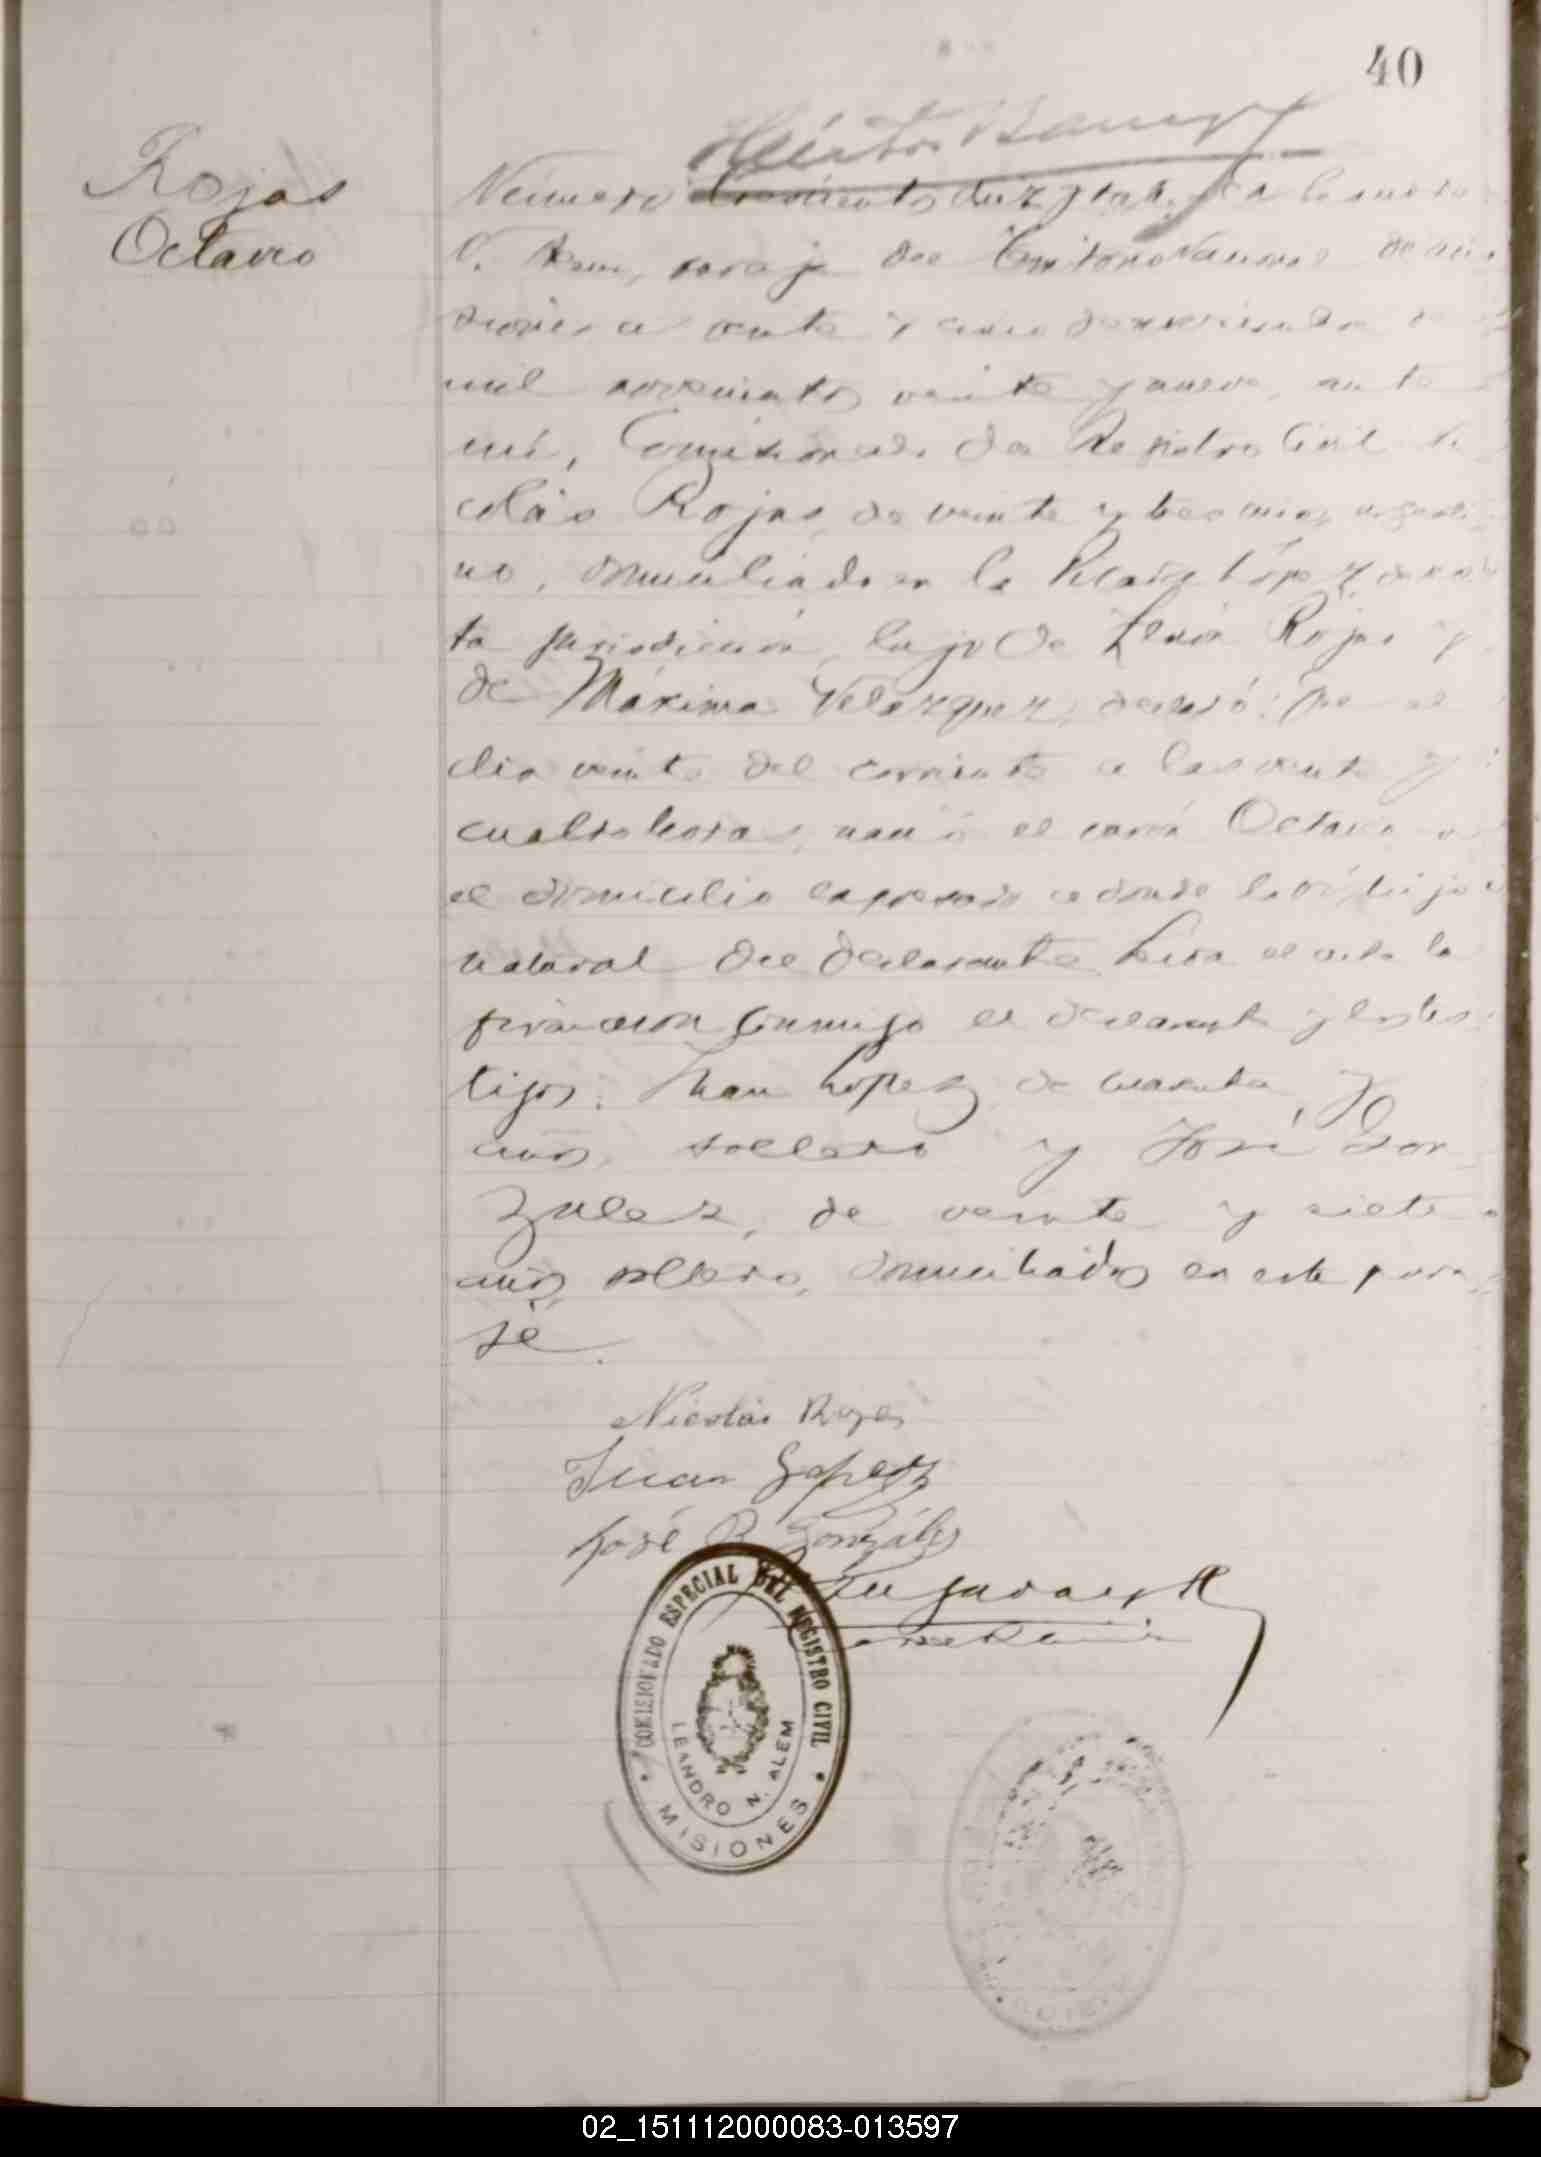 40
Rojas
Octavio
Número diez y
N. Alem, paraje del Territorio Nacional de Mi
siones a veinte y cinco de de
mil novecientos veinte y nueve, ante
mí, Comisionado del Registro Civil Ni
colás Rojas, de veinte y tres años, argenti
no, domiciliado en la Picada López de es
ta jurisdicción, hijo de Rojas y
de Máxima Velazquez, declaró: Que el
día veinte del corriente a las veinte y
cuatro horas, nació el varón Octavio en
el domicilio expresado a donde lo vi, hijo
natural del declarante. Leída el acta la
firmaron conmigo el declarante y los tes
tigos: Juan López de cuarenta y
años, soltero y José Gon
zalez, de veinte y siete
años, soltero, domiciliados en este para
je.
Nicolás Rojas
Juan Lopez
José R. González
COMISIONADO ESPECIAL DEL REGISTRO CIVIL
LEANDRO N. ALEM
MISIONES
02_151112000083-013597